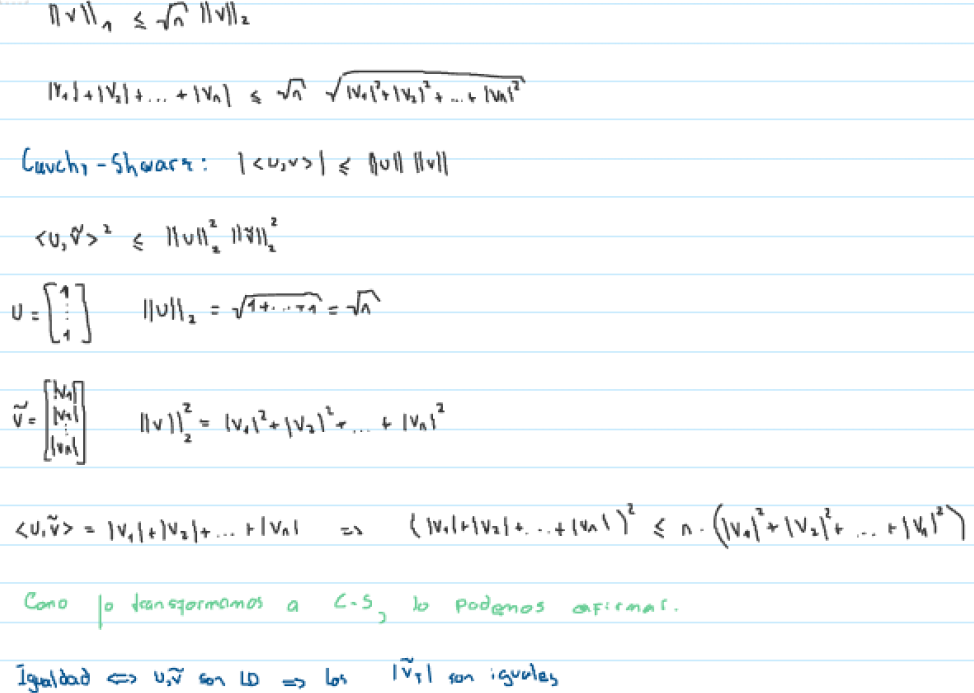 ||v||₁ ≤ √n ||v||₂
|v₁|+|v₂|+...+|vₙ| ≤ √n √(|v₁|²+|v₂|²+...+|vₙ|²)
Cauchy-Shwarz: |<u,v>| ≤ ||u|| ||v||
<u,ṽ>² ≤ ||u||₂² ||ṽ||₂²
u = [1 ⋮ 1] ||u||₂ = √(1+...+1) = √n
ṽ = [|v₁| |v₂| ⋮ |vₙ|] ||v||₂² = |v₁|²+|v₂|²+...+|vₙ|²
<u,ṽ> = |v₁|+|v₂|+...+|vₙ| => (|v₁|+|v₂|+...+|vₙ|)² ≤ n·(|v₁|²+|v₂|²+...+|vₙ|²)
Como lo transformamos a C-S, lo podemos afirmar.
Igualdad <=> u,ṽ son LD => los |ṽᵢ| son iguales